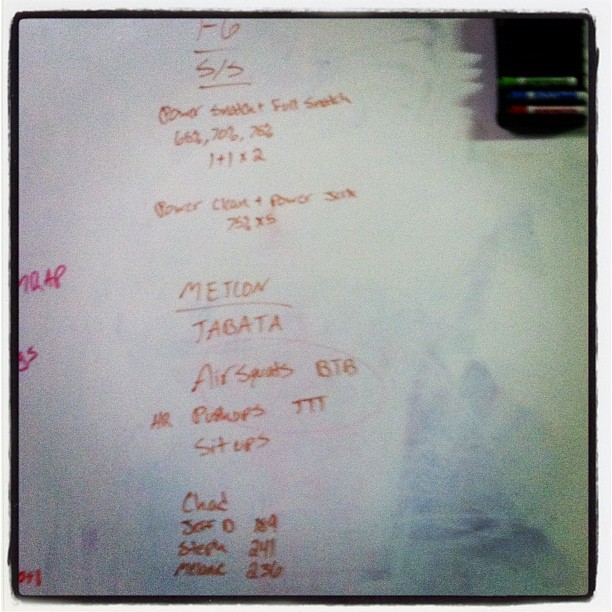 S/S
Power Snatch + Full Snatch
65%, 70%, 75%
1+1 x 2
Power Clean + Power Jerk
75% x5
MRAP
METCON
TABATA
gs
Air Squats BTB
HR Pushups TTT
Sit ups
Chad
Jeff D 189
Steph 241
Melanie 236